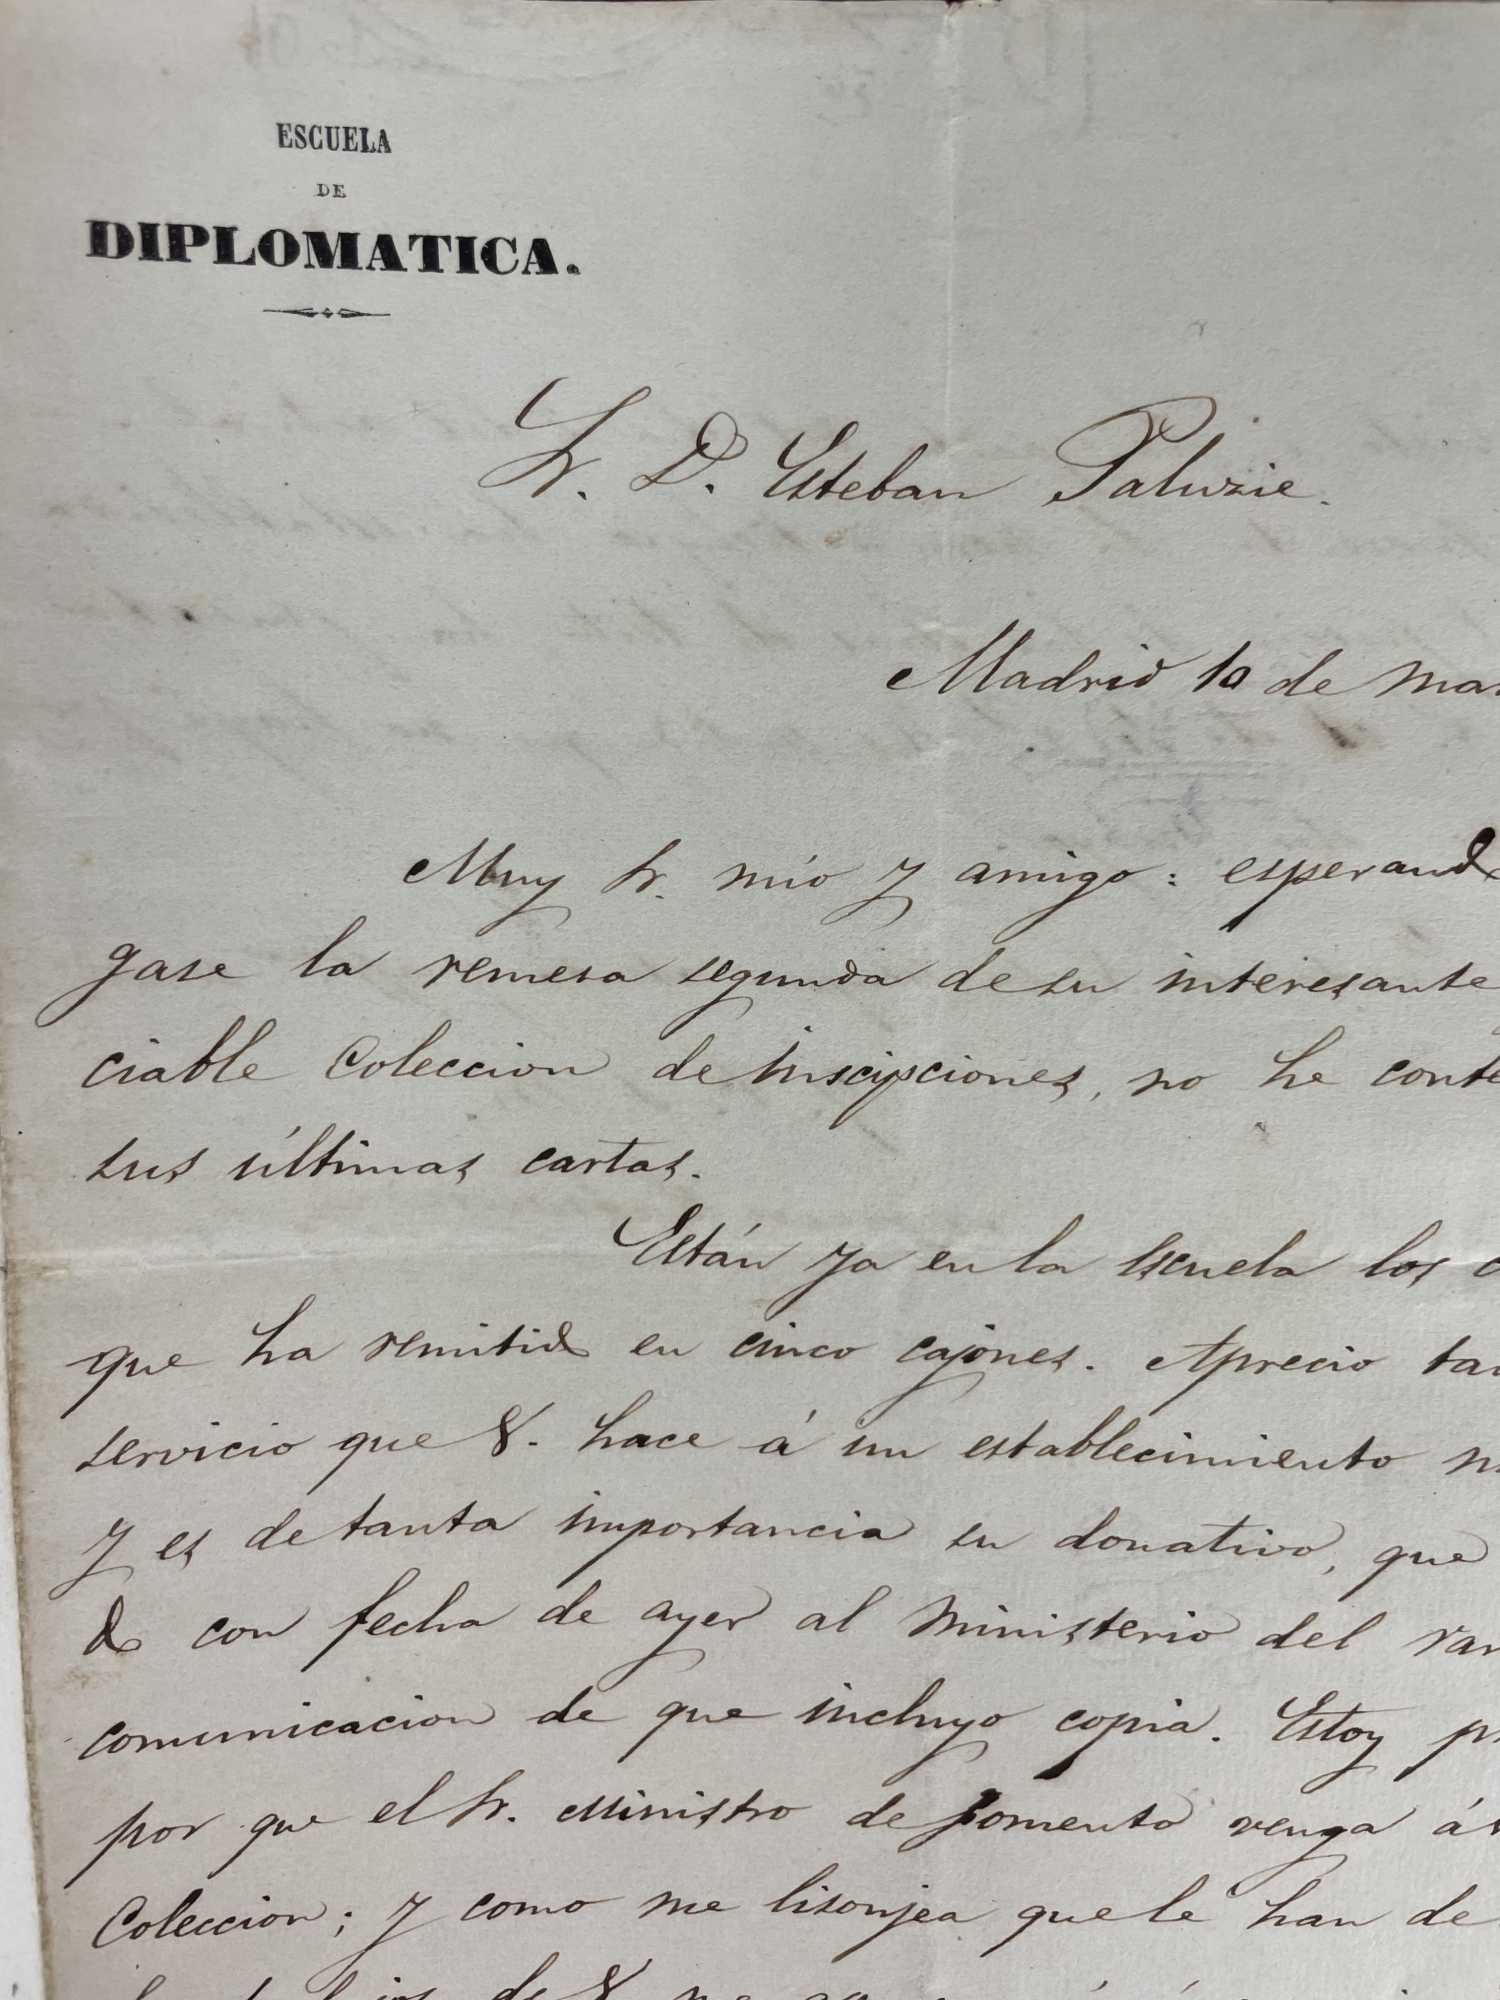 ESCUELA
DE
DIPLOMATICA.
Sr. D. Esteban Paluzie.
Madrid 10 de mar
Muy Sr. mio y amigo: esperando
gase la remesa segunda de su interesante
ciable Coleccion de inscipciones, no he conte
sus últimas cartas.
Están ya en la Escuela los
que ha remitido en cinco cajones. Aprecio tan
servicio que V. hace á un establecimiento
y es de tanta importancia su donativo, que
do con fecha de ayer al Ministerio del ram
comunicacion de que incluyo copia. Estoy
por que el Sr. Ministro de fomento venga á
Coleccion; y como me lisonjea que le han de